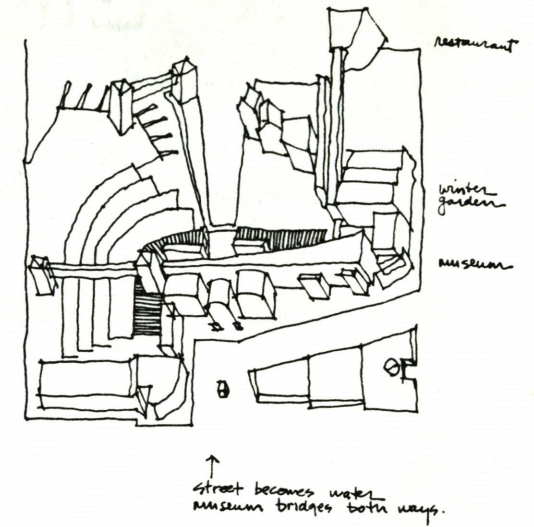 restaurant
winter
garden
museum
street becomes water
museum bridges both ways.